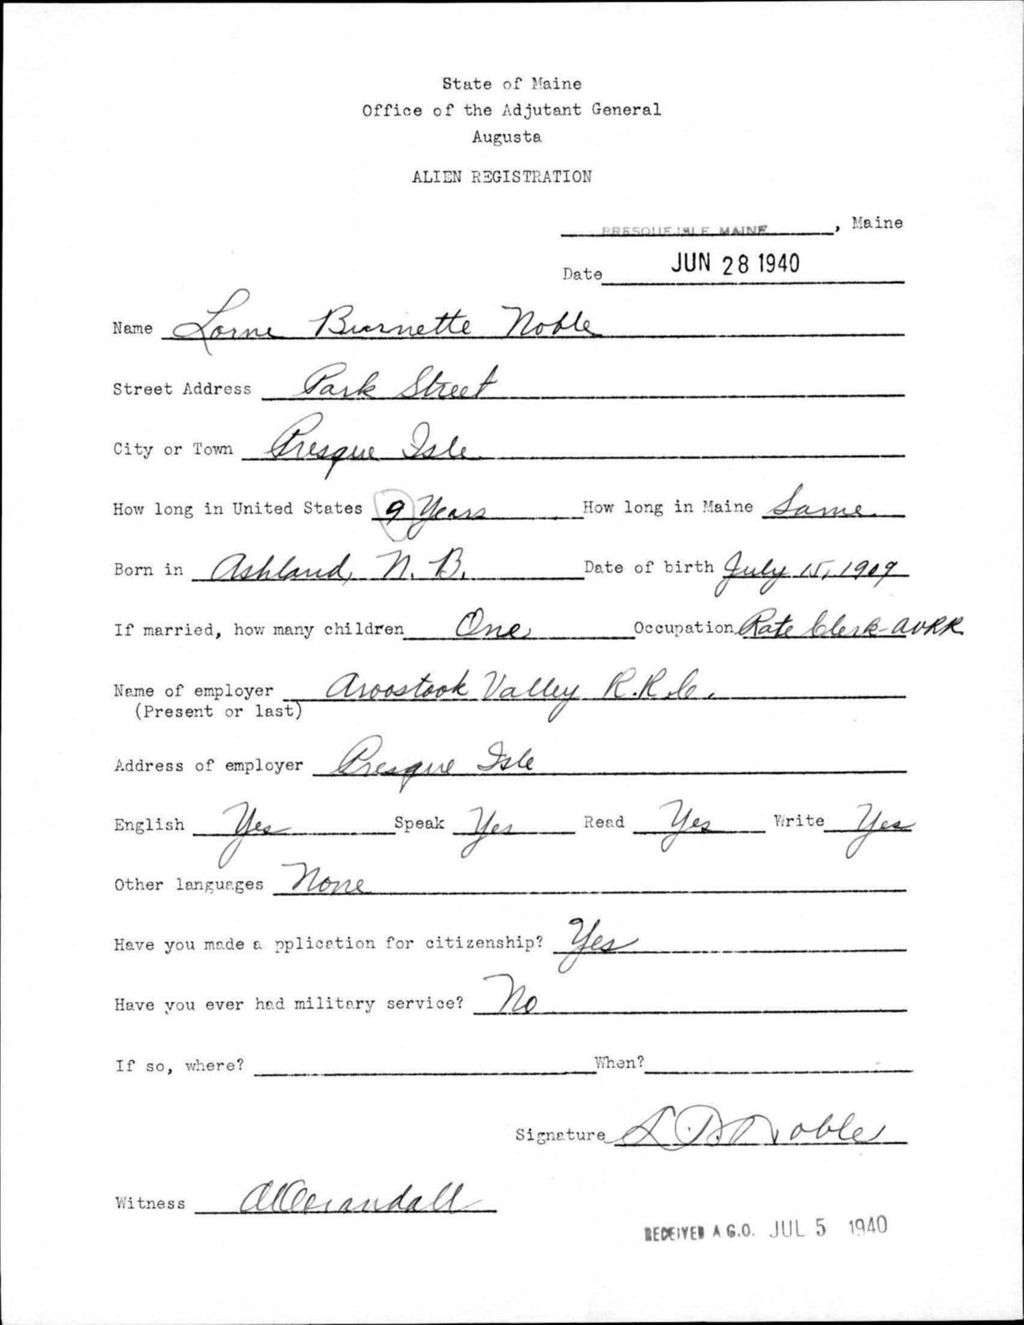 State of Maine
Office of the Adjutant General
Augusta
ALIEN REGISTRATION
PRESQUE ISLE, MAINE, Maine
Date JUN 28 1940
Name Lorne Burnette Noble
Street Address Park Street
City or Town Presque Isle
How long in United States 9 Years How long in Maine Same
Born in Ashland, N. B. Date of birth July 15, 1909
If married, how many children One Occupation Rate Clerk-AVRR
Name of employer Aroostook Valley R.R.Co.
(Present or last)
Address of employer Presque Isle
English Yes Speak Yes Read Yes Write Yes
Other languages None
Have you made a pplication for citizenship? Yes
Have you ever had military service? No
If so, where? When?
Signature L B Noble
Witness Crandall
RECEIVED A.G.O. JUL 5 1940